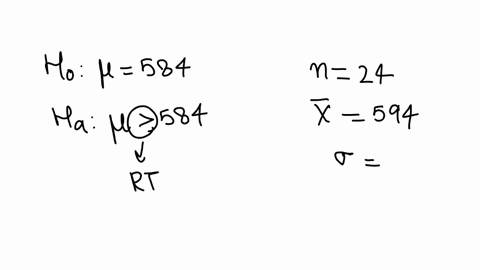 H₀: μ = 584
Hₐ: μ > 584
RT
n = 24
x̄ = 594
σ =